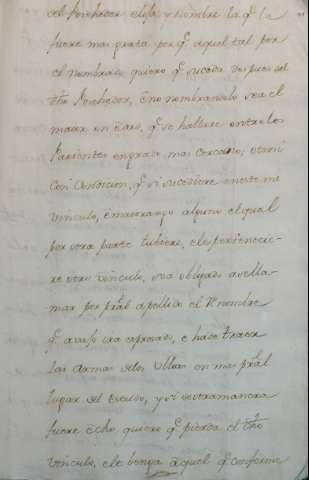 el Posehedor elija y nombre la qᵉ le
fuere mas grata por qᵉ aquel tal por
el nombrado quiero qᵉ suceda despues del
dho Posehedor, é no nombrandolo sea el
maior en edad, qᵉ se hallare entre los
Parientes en grado mas cercano; otrosi
con condicion, qᵉ si sucediere en este mi
vinculo, é maiorazgo alguno el qual
por otra parte tubiere, ó le pertenecie-
re otro vinculo, sea obligado a se lla-
mar por pral apellido el Renombre
qᵉ de suso va expresado, e hade traer
las armas de los Ulloas en mas pral
lugar del Escudo, y si de otra manera
fuere écho, quiero qᵉ pierda el dho
vinculo, é le benga á aquel qᵉ conforme